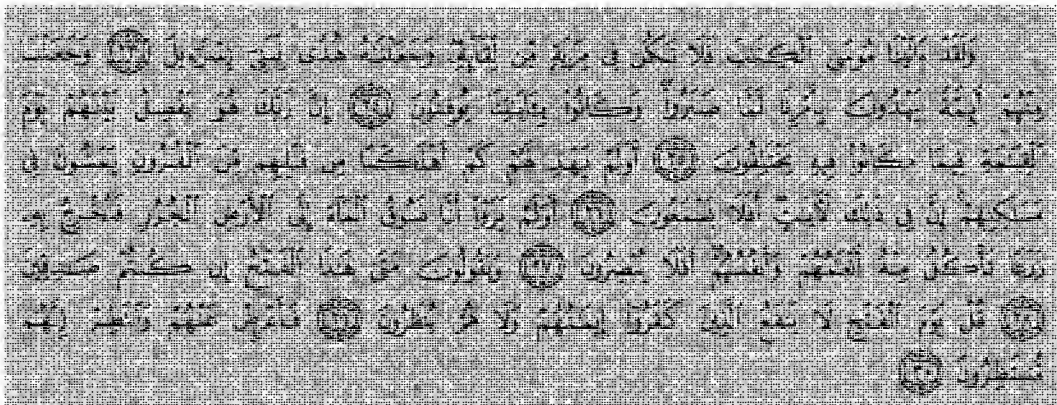 وَلَقَدْ ءَاتَيْنَا مُوسَى ٱلْكِتَٰبَ فَلَا تَكُن فِى مِرْيَةٍ مِّن لِّقَآئِهِۦ وَجَعَلْنَٰهُ هُدًى لِّبَنِىٓ إِسْرَٰٓءِيلَ ٢٣ وَجَعَلْنَا
مِنْهُمْ أَئِمَّةً يَهْدُونَ بِأَمْرِنَا لَمَّا صَبَرُوا۟ وَكَانُوا۟ بِـَٔايَٰتِنَا يُوقِنُونَ ٢٤ إِنَّ رَبَّكَ هُوَ يَفْصِلُ بَيْنَهُمْ يَوْمَ
ٱلْقِيَٰمَةِ فِيمَا كَانُوا۟ فِيهِ يَخْتَلِفُونَ ٢٥ أَوَلَمْ يَهْدِ لَهُمْ كَمْ أَهْلَكْنَا مِن قَبْلِهِم مِّنَ ٱلْقُرُونِ يَمْشُونَ فِى
مَسَٰكِنِهِمْ إِنَّ فِى ذَٰلِكَ لَءَايَٰتٍ أَفَلَا يَسْمَعُونَ ٢٦ أَوَلَمْ يَرَوْا۟ أَنَّا نَسُوقُ ٱلْمَآءَ إِلَى ٱلْأَرْضِ ٱلْجُرُزِ فَنُخْرِجُ بِهِۦ
زَرْعًا تَأْكُلُ مِنْهُ أَنْعَٰمُهُمْ وَأَنفُسُهُمْ أَفَلَا يُبْصِرُونَ ٢٧ وَيَقُولُونَ مَتَىٰ هَٰذَا ٱلْفَتْحُ إِن كُنتُمْ صَٰدِقِينَ
٢٨ قُلْ يَوْمَ ٱلْفَتْحِ لَا يَنفَعُ ٱلَّذِينَ كَفَرُوٓا۟ إِيمَٰنُهُمْ وَلَا هُمْ يُنظَرُونَ ٢٩ فَأَعْرِضْ عَنْهُمْ وَٱنتَظِرْ إِنَّهُم
مُّنتَظِرُونَ ٣٠